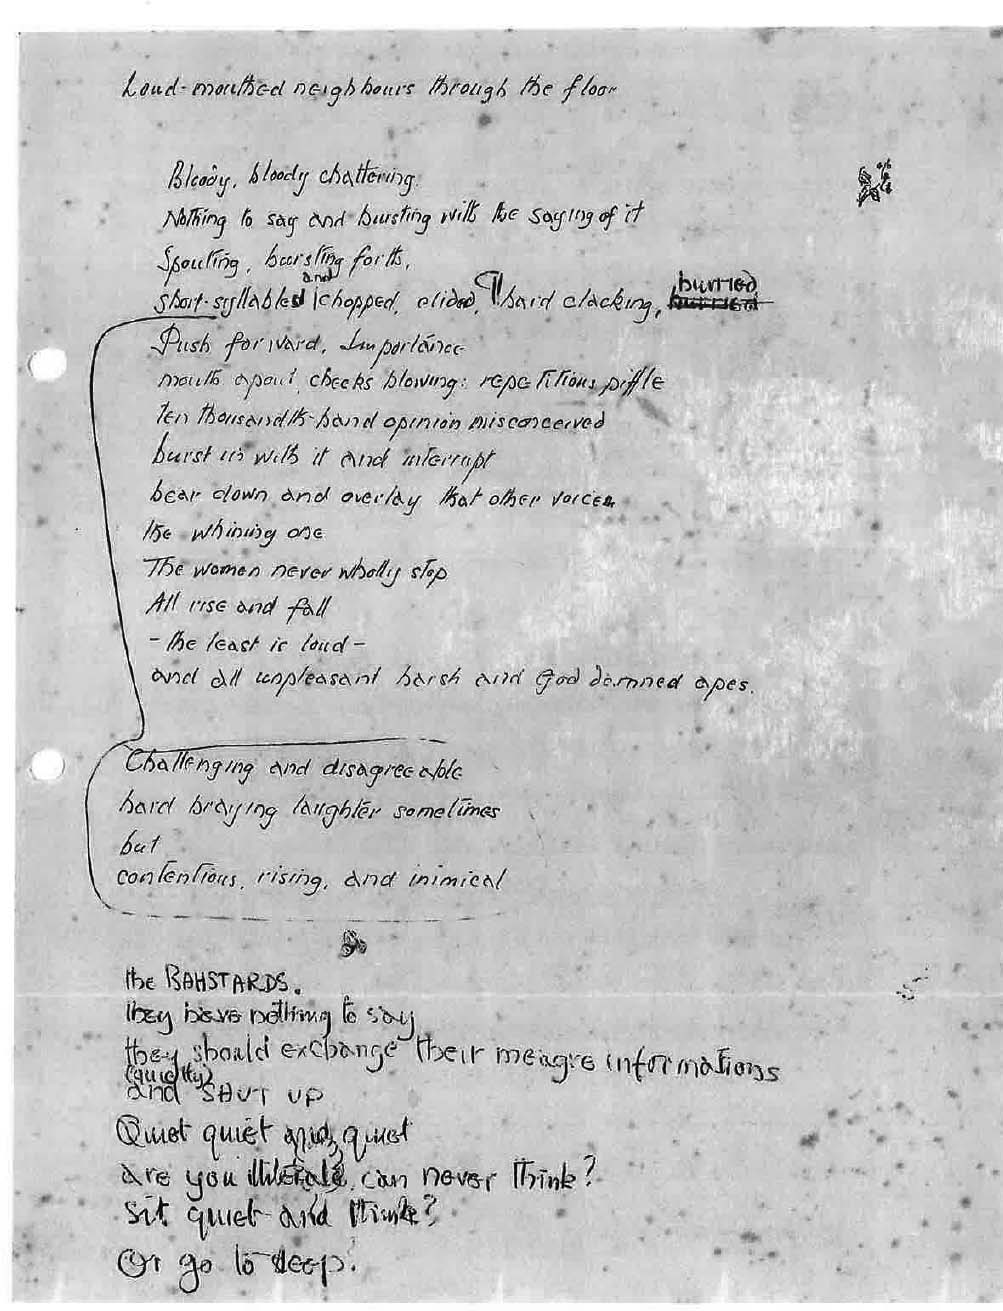 Loud-mouthed neighbours through the floor
Bloody, bloody chattering.
Nothing to say and bursting with the saying of it
Spouting, bursting forth,
short-syllabled and chopped, elided, hard clacking, hurried
Push forward, Importance
mouth apout, cheeks blowing: repetitious piffle
ten thousandth-hand opinion misconceived
burst in with it and interrupt
bear down and overlay that other voice
the whining one
The women never wholly stop
All rise and fall
- the least is loud -
and all unpleasant harsh and God damned apes.
Challenging and disagreeable
hard braying laughter sometimes
but
contentious, rising, and inimical
the BAHSTARDS.
they have nothing to say
they should exchange their meagre informations
(quietly)
and SHUT UP
Quiet quiet and quiet
are you illiterate, can never think?
Sit quiet and think?
Or go to sleep.